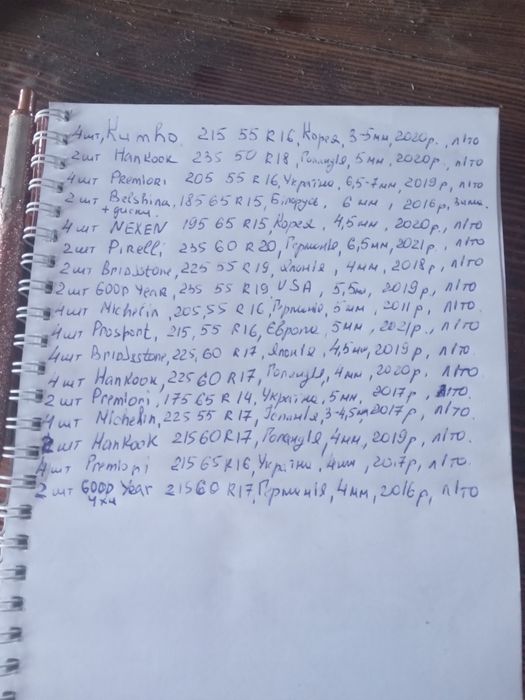 4шт, Kumho 215 55 R16, Корея, 3-5мм, 2020р., літо
2шт Hankook 235 50 R18, Голандія, 5мм, 2020р., літо
4шт Premiori 205 55 R16, Україна, 6,5-7мм, 2019р, літо
2шт Belshina, 185 65 R15, Білорусь, 6мм, 2016р, зима.
+ диски
4шт NEKEN 195 65 R15 Корея, 4,5мм, 2020р, літо
2шт Pirelli, 235 60 R20, Германія, 6,5мм, 2021р, літо
2шт Bridsstone, 225 55 R19, Японія, 4мм, 2018р, літо
2шт Good Year, 235 55 R19 USA, 5,5м, 2019р, літо
4шт Michelin, 205, 55 R16, Германія, 5мм, 2011р, літо.
4шт Prosport, 215, 55 R16, Европа, 5мм, 2021р, літо
4шт Bridsstone, 225, 60 R17, Японія, 4,5мм, 2019р, літо
4шт Hankook, 225 60 R17, Голандія, 4мм, 2020р, літо
2шт Premiori, 175 65 R14, Україна, 5мм, 2017р, літо.
4шт Michelin, 225 55 R17, Іспанія, 3-4,5мм 2017р, літо.
2шт Hankook 215 60 R17, Голандія, 4мм, 2019р, літо.
4шт Premiori 215 65 R16, Україна, 4мм, 2017р, літо.
2шт Good Year 215 60 R17, Германія, 4мм, 2016р, літо